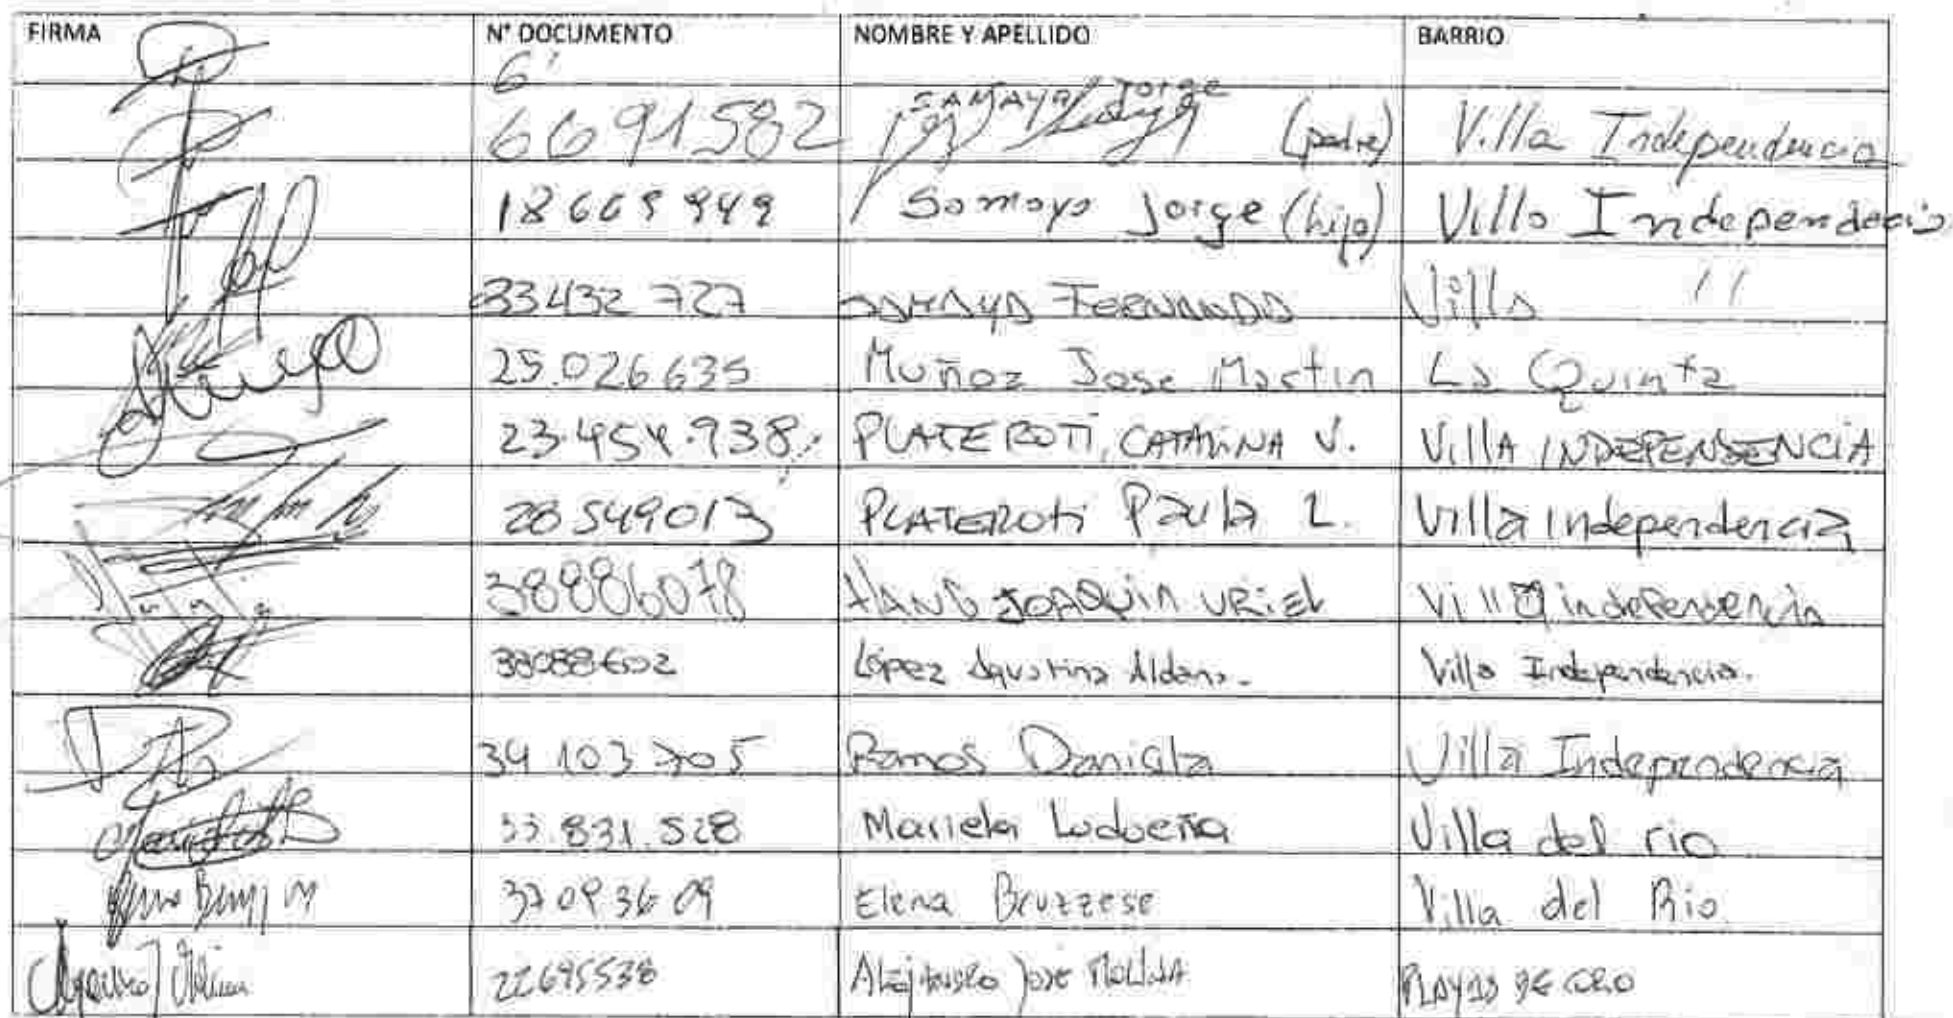 FIRMA N° DOCUMENTO NOMBRE Y APELLIDO BARRIO
6
6691582 SAMAYA Jorge (padre) Villa Independencia
Samaya Jorge (hijo) Villa Independecia
33432 727 SAMAYA FERNANDO Villa 11
25.026.635 Muñoz Jose Martin La Quinta
23.454.938 PLATEROTI, CATALINA V. VillA INDEPENDENCIA
28549013 PLATEROTi Paula L. Villa Independencia
38886078 JOAQUIN URiEL Villa independencia
33088602 López Agustina Aldana. Villa Independencia.
34 103 705 Ramos Daniela Villa Independencia
33.831.528 Mariela Ludueña Villa del rio
37093609 Elena Bruzzese Villa del Rio
22695538 Alejandro José MOLINA PLAYAS DE ORO